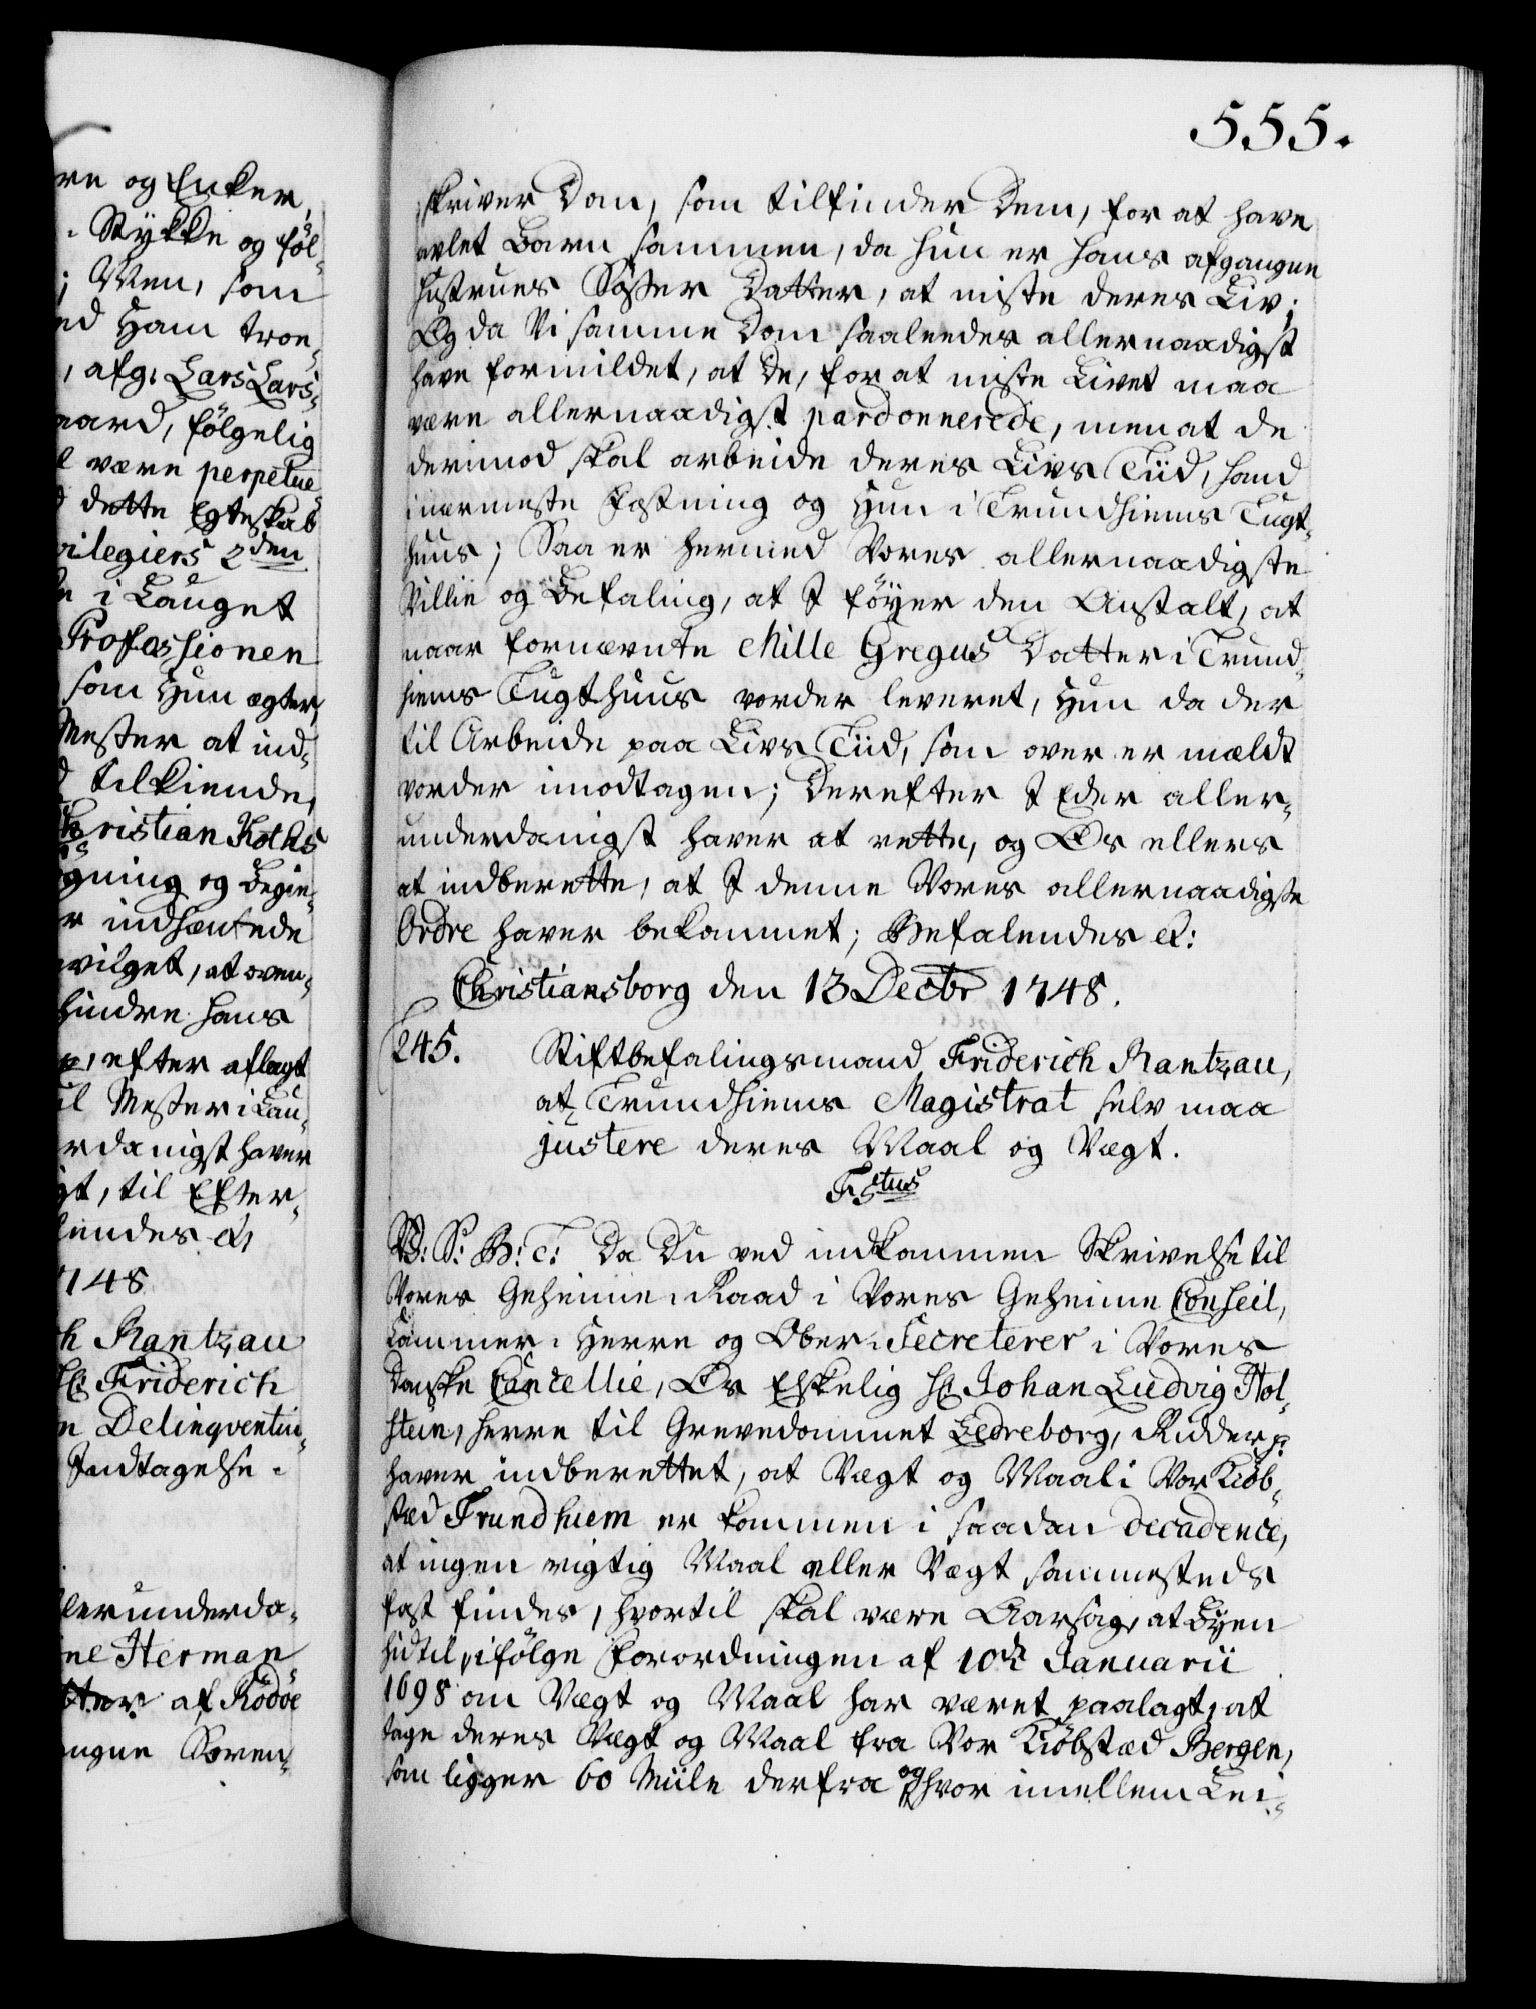 555.
re og Enker,
Stykke og föl-
; Men, som
ed Ham troe-
, afg: Lars Lars-
aard, fölgelig
l være perpetue
d dette Egteskab
vilegiers 2den
e i Lauget
Professionen
som Hun ægter,
Mester at ind-
d tilkiende,
Christian Koths
gning og Begie-
r indhæntede
vilget, at oven-
hindre hans
p, efter aflagt
il Mester i Lau-
rdanigst haver
gt, til Efter-
lendes &,
748
h Rantzau
H: Friderich
n Delinqventin-
Indtagelse i
lerunderda-
ne Herman
tter af Rödöe
ngne Soren-
skriver Dom, som tilfinder Dem, for at have
avlet Barn sammen, da hun er hans afgangne
Hustrues Söster Datter, at miste deres Liv;
Og da Vi samme Dom saaledes allernaadigst
have formildet, at de, for at miste Livet maa
være allernaadigst pardonnerede, men at de
derimod skal arbeide deres Livs Tiid, hand
i nærmeste Fæstning og Hun i Trundhiems Tugt-
huus; Saa er hermed Vores allernaadigste
Villie og Befaling, at I föyer den Anstalt, at
naar fornævnte Mille Gregus Datter i Trund-
hiems Tugthuus vorder leveret, Hun da der
til Arbeide paa Livs Tiid, som over er mældt
vorder imodtagen; Derefter I Eder aller-
underdanigst haver at rette, og Os ellers
at indberette, at I denne Vores allernaadigste
Ordre haver bekommet; Befalendes &:
Christiansborg den 13 Decbr 1748.
245. Stiftbefalingsmand Friderich Rantzau,
at Trundhiems Magistrat selv maa
justere deres Maal og Vægt.
F. 5tus
V: S: G: T: Da Du ved indkommen Skrivelse til
Vores Geheime Raad i Vores Geheime Conseil,
Cammer-Herre og Ober-Secreterer i Vores
Danske Cancellie, Os Elskelig H: Johan Ludvig Hol-
stein, Herre til Grevedommet Ledreborg, Ridder p:
haver indberettet, at Vægt og Maal i Vor Kiöb-
stæd Trundhiem er kommen i saadan decadence,
at ingen rigtig Maal eller Vægt sammesteds
fast findes, hvortil skal være Aarsag, at Byen
hidtil, i fölge Forordningen af 10de Januarii
1698 om Vægt og Maal har været paalagt, at
tage deres Vægt og Maal fra Vor Kiöbstæd Bergen,
som ligger 60 Miile derfra og hvor imellem Lei-